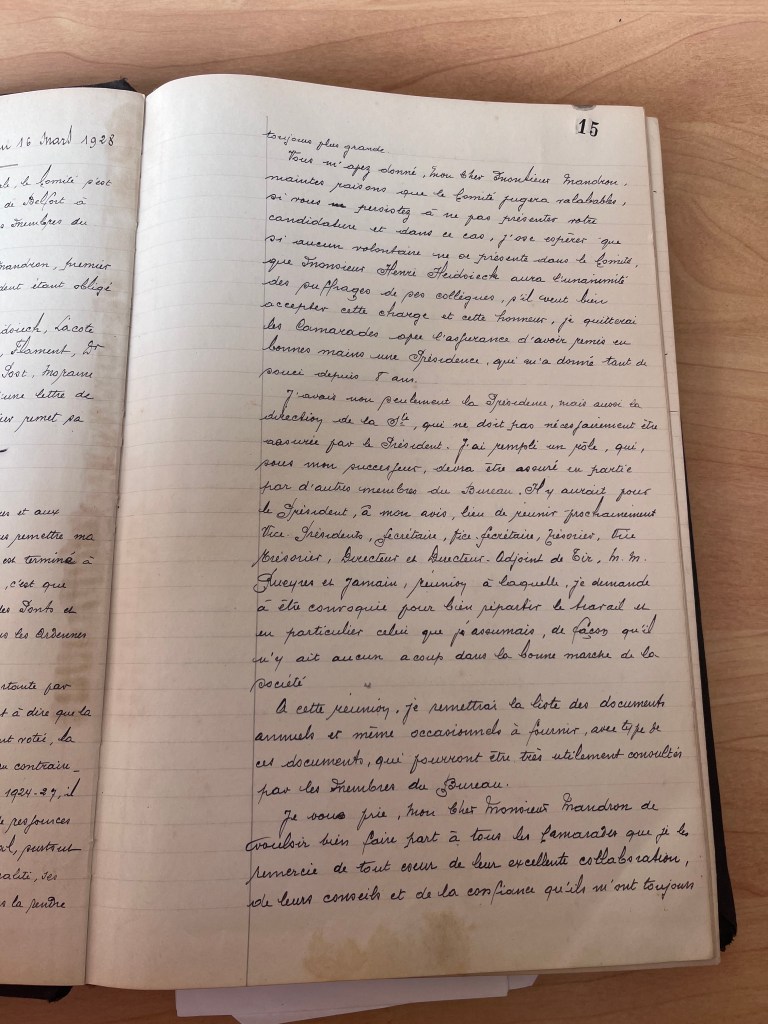 u 16 Mars 1928
le, le Comité s'est
de Belfort à
s Membres du
Mandron, premier
dent étant obligé
douck, Lacote
, Flament, Dr
Post. Moraine
'une lettre de
ier remet sa
res et aux
us remettre ma
est terminé à
, c'est que
des Ponts et
us les Ardennes
ortante par
t à dire que la
nt votée, la
au contraire_
1924-27, il
e ressources
al, surtout
ralité, ses
s la rendre
15
toujours plus grande.
Vous m'avez donné, mon Cher Monsieur Mandron,
maintes raisons que le Comité jugera valabables,
si vous persistez à ne pas présenter votre
candidature et dans ce cas, j'ose espérer que
si aucun volontaire ne se présente dans le Comité,
que Monsieur Henri Heidsieck aura l'unanimité
des suffrages de ses collègues, s'il veut bien
accepter cette charge et cette honneur, je quitterai
les Camarades avec l'assurance d'avoir remis en
bonnes mains une Présidence, qui m'a donné tant de
souci depuis 8 ans.
J'avais non seulement la Présidence, mais aussi la
direction de la Sté, qui ne doit pas nécessairement être
assurée par le Président. J'ai rempli un rôle, qui,
sous mon successeur, devra être assuré en partie
par d'autres membres du Bureau. Il y aurait pour
le Président, à mon avis, lieu de réunir prochainement
Vice-Présidents, Secrétaire, Vice-Secrétaire, Trésorier, Vice
Trésorier, Directeur et Directeur-Adjoint de Tir, M.M.
Queyres et Jamain, réunion à laquelle, je demande
à être convoquée pour bien répartir le travail et
en particulier celui que j'assumais, de façon qu'il
n'y ait aucun acoup dans la bonne marche de la
société
A cette réunion, je remettrai la liste des documents
annuels et même occasionnels à fournir, avec type de
ces documents, qui pourront être très utilement consultés
par les Membres du Bureau.
Je vous prie, mon Cher Monsieur Mandron de
vouloir bien faire part à tous les Camarades que je les
remercie de tout coeur de leur excellente collaboration,
de leurs conseils et de la confiance qu'ils m'ont toujours